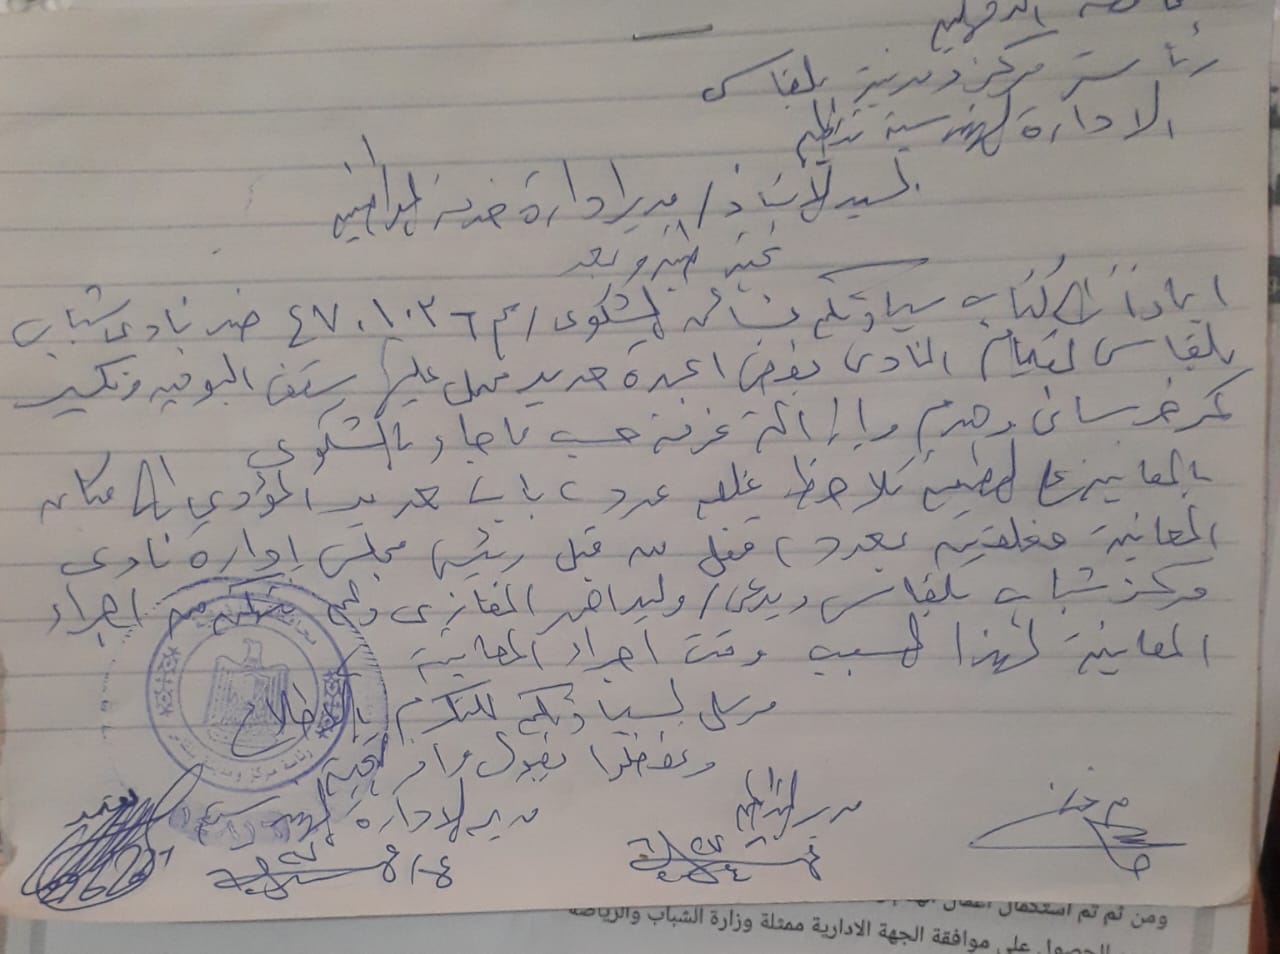 محافظة الدقهلية
رئاسة مركز ومدينة بلقاس
الادارة الهندسية تنظيم
السيد الأستاذ / مدير ادارة خدمة المواطنين
تحية طيبة وبعد
ايماءا الى كتاب سيادتكم بشأن الشكوى رقم ٤٧٠١٠٢٦ ضد نادى شباب
بلقاس لقيام النادى بفض اعمدة حديد محمل عليها سقف البوفيه وتكسير
خرسانى وهدم وازالة غرفة حسب ما جاء بالشكوى
بالمعاينة على الطبيعة تلاحظ غلق عدد ٢ باب حديد المؤدي الى مكان
المعاينة مغلقين بعدد ٢ قفل من قبل رئيس مجلس إدارة نادى
مركز شباب بلقاس ويدعى / وليد المغازى ولم نتمكن من اجراء
المعاينة لهذا السبب وقت اجراء المعاينة
مرسل لسيادتكم للتكرم بالاطلاع
وتفضلوا بقبول وافر التحية
م. مدير التنظيم مدير الادارة الهندسية يعتمد
ومن ثم تم استكمال أعمال
الحصول على موافقة الجهة الادارية ممثلة وزارة الشباب والرياضة